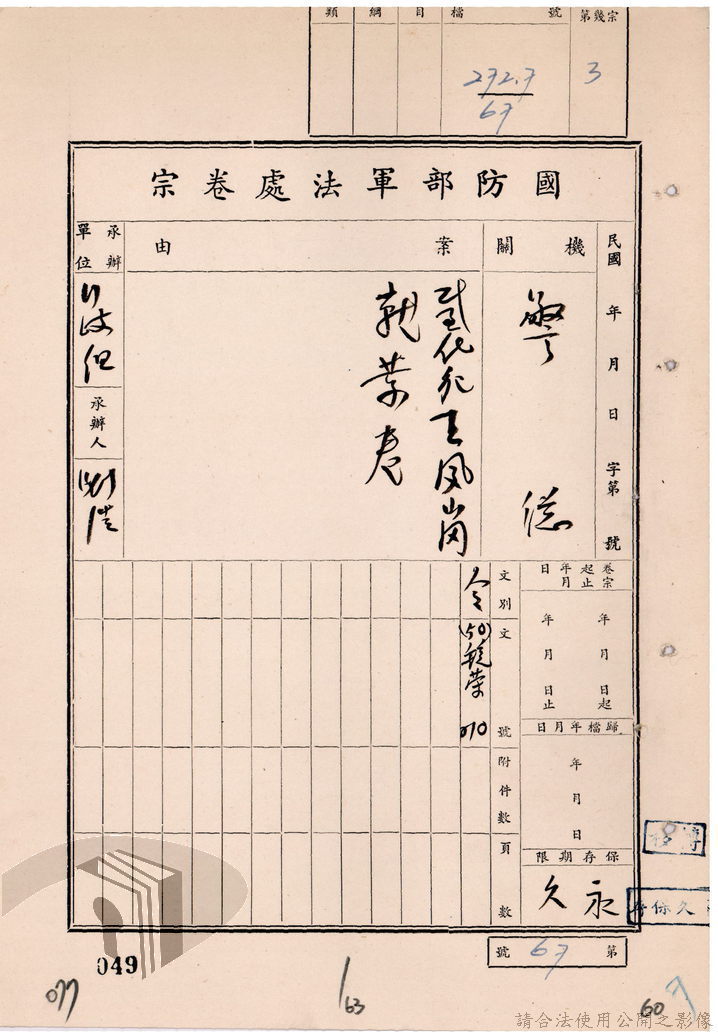 宗幾第
號
檔
目
綱
類
3
272.7
67
國防部軍法處卷宗
民國 年 月 日 字第 號
機關
警總
案由
王鳳崗
執業卷
承辦單位
承辦人
卷宗起止年月日
年 月 日起
年 月 日止
歸檔年月日
年 月 日
保存期限
永久
文別
令
文號
(50)
010
附件數
頁數
久保存
第 67 號
049
077
1/63
60
請合法使用公開之影像